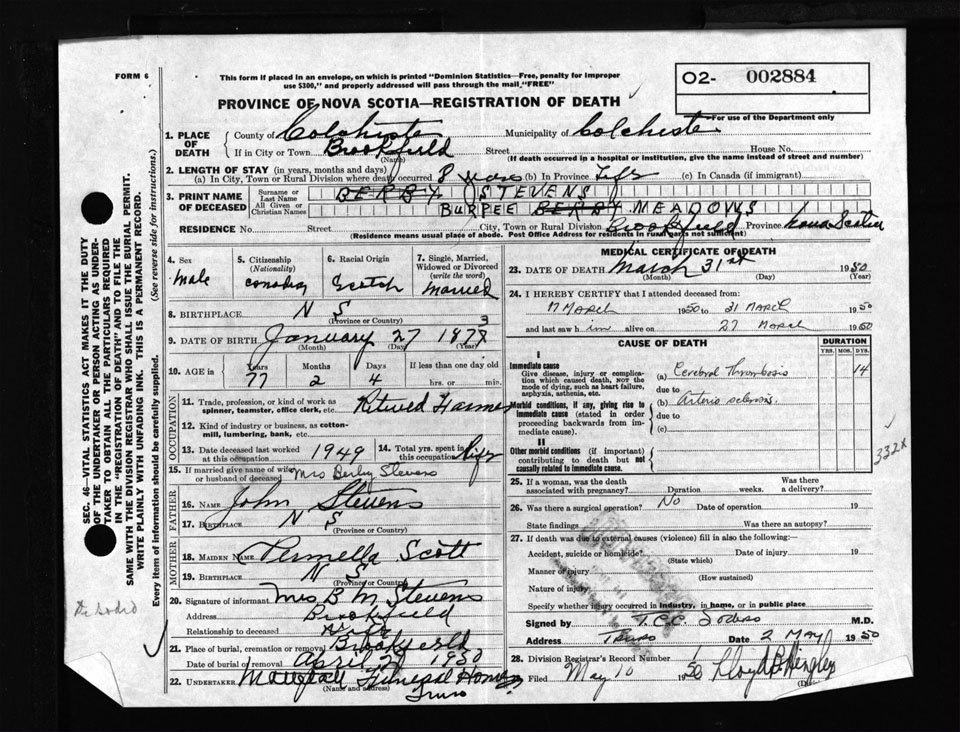 FORM 6
This form if placed in an envelope, on which is printed "Dominion Statistics—Free, penalty for improper
use $300," and properly addressed will pass through the mail "FREE"
PROVINCE OF NOVA SCOTIA—REGISTRATION OF DEATH
O2- 002884
For use of the Department only
SEC. 46—VITAL STATISTICS ACT MAKES IT THE DUTY
OF THE UNDERTAKER OR PERSON ACTING AS UNDER-
TAKER TO OBTAIN ALL THE PARTICULARS REQUIRED
IN THE "REGISTRATION OF DEATH" AND TO FILE THE
SAME WITH THE DIVISION REGISTRAR WHO SHALL ISSUE THE BURIAL PERMIT.
WRITE PLAINLY WITH UNFADING INK. THIS IS A PERMANENT RECORD.
Every item of information should be carefully supplied. (See reverse side for instructions.)
1. PLACE OF DEATH
County of Colchester Municipality of Colchester
If in City or Town Brookfield Street House No.
(Name) (If death occurred in a hospital or institution, give the name instead of street and number)
2. LENGTH OF STAY (in years, months and days)
(a) In City, Town or Rural Division where death occurred 8 years (b) In Province Life (c) In Canada (if immigrant)
3. PRINT NAME OF DECEASED
Surname or Last Name BERBY STEVENS
All Given or Christian Names BURPEE BERBY MEADOWS
RESIDENCE No. Street City, Town or Rural Division Brookfield Province Nova Scotia
(Residence means usual place of abode. Post Office Address for residents in rural parts not sufficient)
4. Sex
Male
5. Citizenship
(Nationality)
Canadian
6. Racial Origin
Scotch
7. Single, Married,
Widowed or Divorced
(write the word)
Married
8. BIRTHPLACE N S
(Province or Country)
9. DATE OF BIRTH January 27 1873
(Month) (Day) (Year)
10. AGE in Years Months Days If less than one day old
77 2 4 hrs. or min.
OCCUPATION
11. Trade, profession, or kind of work as
spinner, teamster, office clerk, etc. Retired Farmer
12. Kind of industry or business, as cotton-
mill, lumbering, bank, etc.
13. Date deceased last worked
at this occupation 1949
14. Total yrs. spent in
this occupation Life
15. If married give name of wife
or husband of deceased Mrs Berby Stevens
FATHER
16. Name John Stevens
17. Birthplace N S
(Province or Country)
MOTHER
18. Maiden Name Permella Scott
19. Birthplace N S
(Province or Country)
20. Signature of informant Mrs B M Stevens
Address Brookfield
Relationship to deceased Wife
21. Place of burial, cremation or removal Brookfield
Date of burial or removal April 2 1950
22. UNDERTAKER Funeral Home
(Name and address) Truro
MEDICAL CERTIFICATE OF DEATH
23. DATE OF DEATH March 31st 1950
(Month) (Day) (Year)
24. I HEREBY CERTIFY that I attended deceased from:
17 MARCH 1950 to 31 MARCH 1950
and last saw him alive on 27 March 1950
CAUSE OF DEATH
DURATION
YRS. MOS. DYS.
I
Immediate cause
Give disease, injury or complica-
tion which caused death, NOT the
mode of dying, such as heart failure,
asphyxia, asthenia, etc.
(a) Cerebral Thrombosis 14
due to
Morbid conditions, if any, giving rise to
immediate cause (stated in order
proceeding backwards from im-
mediate cause).
(b) Arterio sclerosis.
due to
(c)
II
Other morbid conditions (if important)
contributing to death but not
causally related to immediate cause.
332X
25. If a woman, was the death
associated with pregnancy? Duration weeks. Was there
a delivery?
26. Was there a surgical operation? No Date of operation 19
State findings Was there an autopsy?
27. If death was due to external causes (violence) fill in also the following:—
Accident, suicide or homicide? Date of injury 19
(State which)
Manner of injury
(How sustained)
Nature of injury
Specify whether injury occurred in industry, in home, or in public place
Signed by M.D.
Address Truro Date 2 May 1950
28. Division Registrar's Record Number 1
Filed May 10 1950